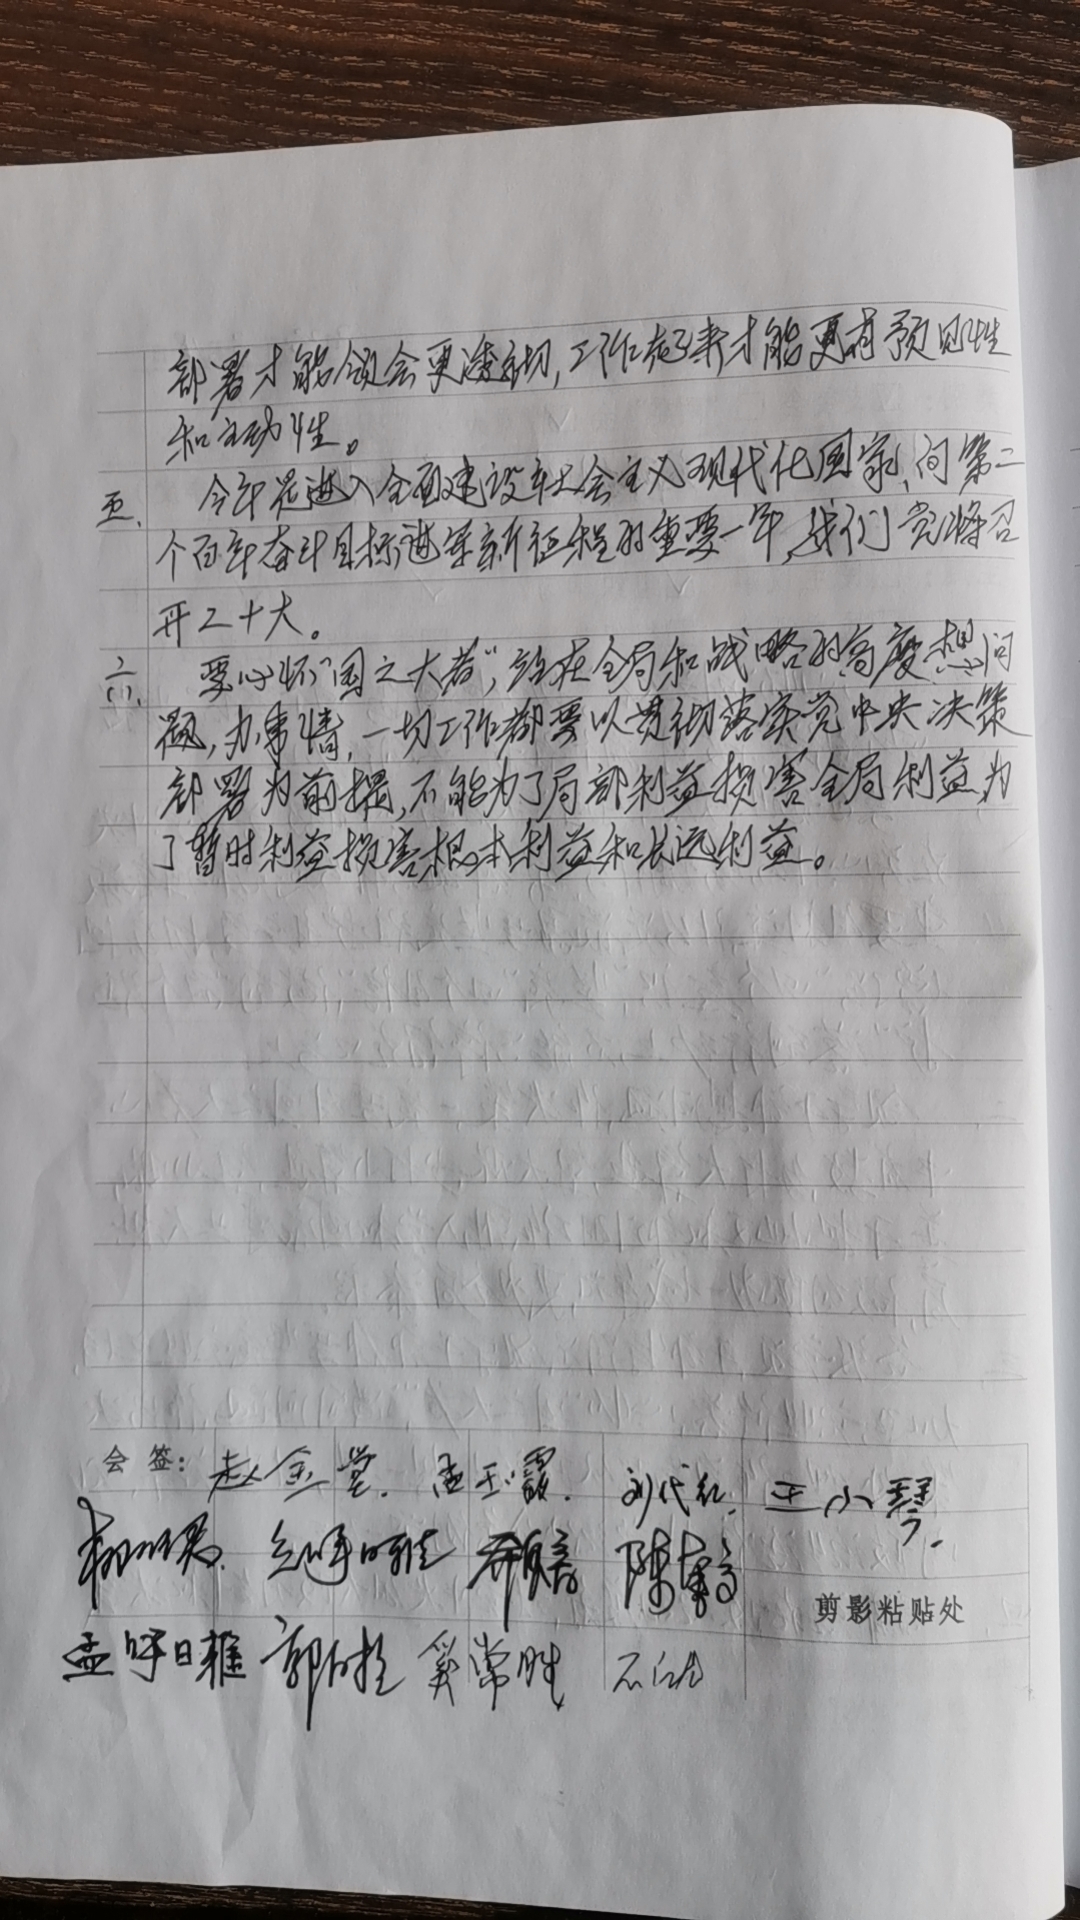 部署才能领会更透彻,工作起来才能更有预见性
和主动性。
五、 今年是进入全面建设社会主义现代化国家、向第二
个百年奋斗目标进军新征程的重要一年,我们党将召
开二十大。
六、
(1)、 要心怀"国之大者",站在全局和战略的高度想问
题,办事情,一切工作都要以贯彻落实党中央决策
部署为前提,不能为了局部利益损害全局利益,为
了暂时利益损害根本利益和长远利益。
会 签: 赵金堂. 孟玉霞. 刘代红. 王小琴.
剪影粘贴处
孟呼日雅 奚常胜